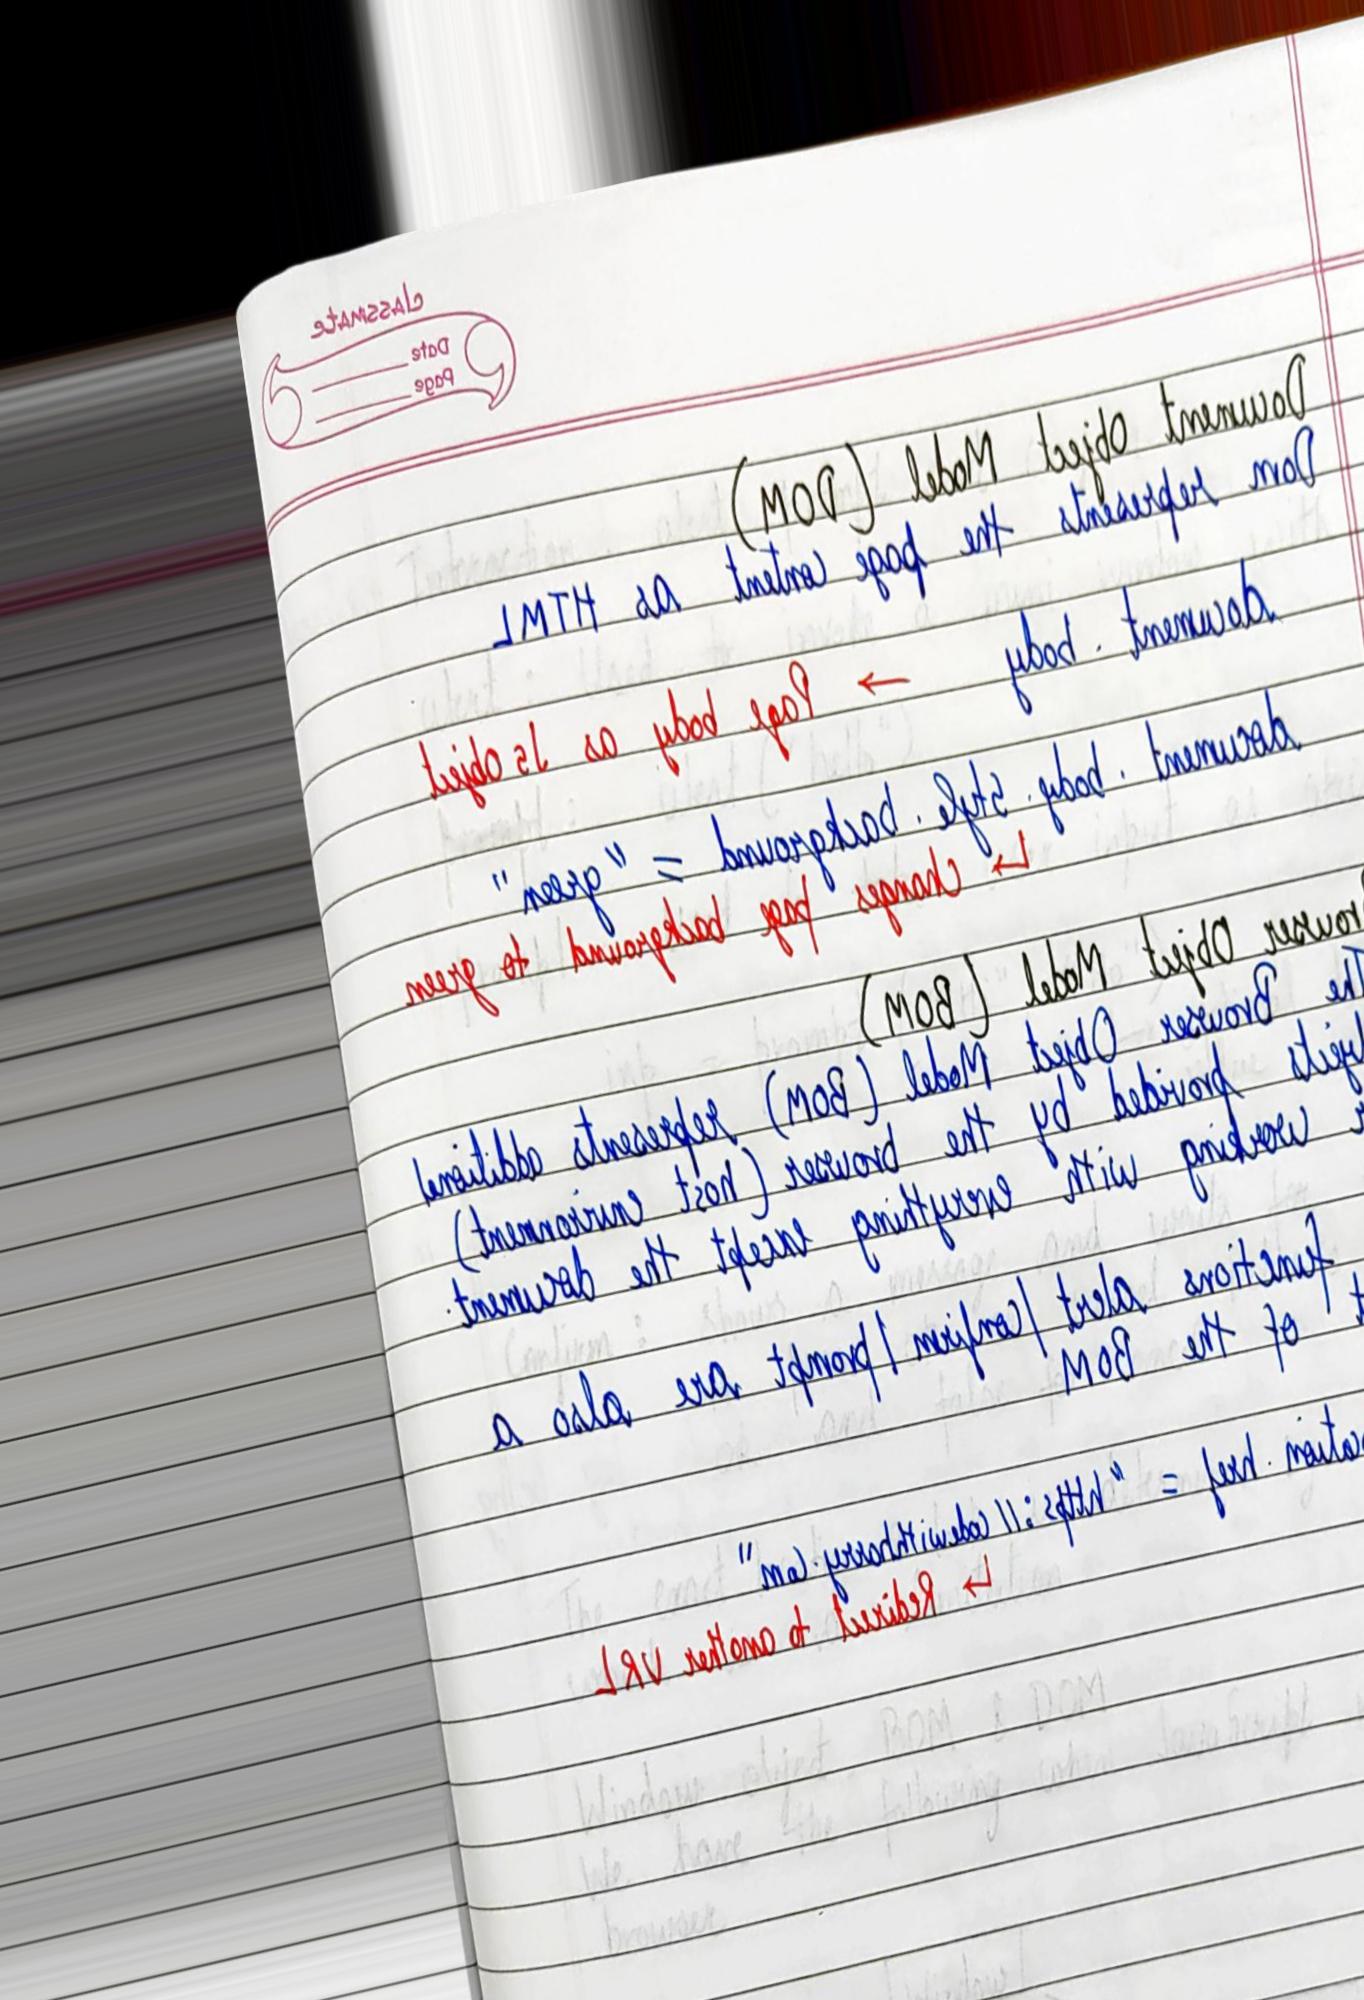 classmate
Date
Page
Document Object Model (DOM)
Dom represents the page content as HTML
document . body → Page body as Js object
document . body . style . background = "green"
↳ changes page background to green
rowser Object Model (BOM)
The Browser Object Model (BOM) represents additional
provided by the browser (host environment)
working with everything except the document.
functions alert / confirm / prompt are also a
of the BOM
href = "https://codewithharry.com"
↳ Redirect to another URL